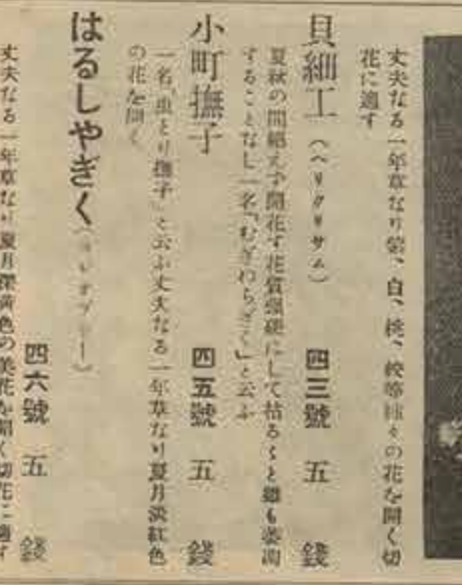 丈夫なる一年草なり紫、白、桃、絞等種々の花を開く切
花に適す
貝細工（ヘリクリサム）　四三號　五　錢
夏秋の間絶えず開花す花質强硬にして枯るゝと雖も萎凋
することなし一名「むぎわらぎく」と云ふ
小町撫子　四五號　五　錢
一名「虫とり撫子」と云ふ丈夫なる一年草なり夏月淡紅色
の花を開く
はるしやぎく　四六號　五　錢
丈夫なる一年草なり夏月深黄色の美花を開く切花に適す